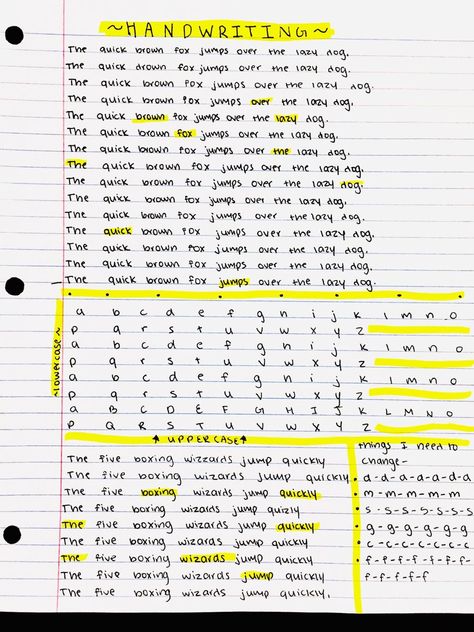 ~HANDWRITING~
The quick brown fox jumps over the lazy dog.
The quick drown fox jumps over the lazy dog.
The quick brown fox jumps over the lazy dog.
The quick brown fox jumps over the lazy dog.
The quick brown fox jumps over the lazy dog.
The quick brown fox jumps over the lazy dog.
The quick brown fox jumps over the lazy dog.
The quick brown fox jumps over the lazy dog.
The quick brown fox jumps over the lazy dog.
The quick brown fox jumps over the lazy dog.
The quick brown fox jumps over the lazy dog.
The quick brown fox jumps over the lazy dog.
The quick brown fox jumps over the lazy dog.
The quick brown fox jumps over the lazy dog.
The quick brown fox jumps over the lazy dog.
~lowercase~
a b c d e f g h i j k l m n o
p q r s t u v w x y z
a b c d e f g h i j k l m n o
p q r s t u v w x y z
a b c d e f g h i j k l m n o
p q r s t u v w x y z
a B C D E F G H I J K L M N O
P Q R S T U V W X Y Z
↑ UPPERCASE ↑
The five boxing wizzards jump quickly
The five boxing wizzards jump quickly.
The five boxing wizards jump quickly
The five boxing wizards jump quizly
The five boxing wizards jump quickly
The five boxing wizards jump quickly
The five boxing wizards jump quickly
The five boxing wizards jump quickly
The five boxing wizards jump quickly.
things I need to
change-
a-d-a-a-d-a
m-m-m-m-m
s-s-s-s-s-s-s
g-g-g-g-g-g
c-c-c-c-c-c-c
f-f-f-f-f-f-f-f
f-f-f-f-f